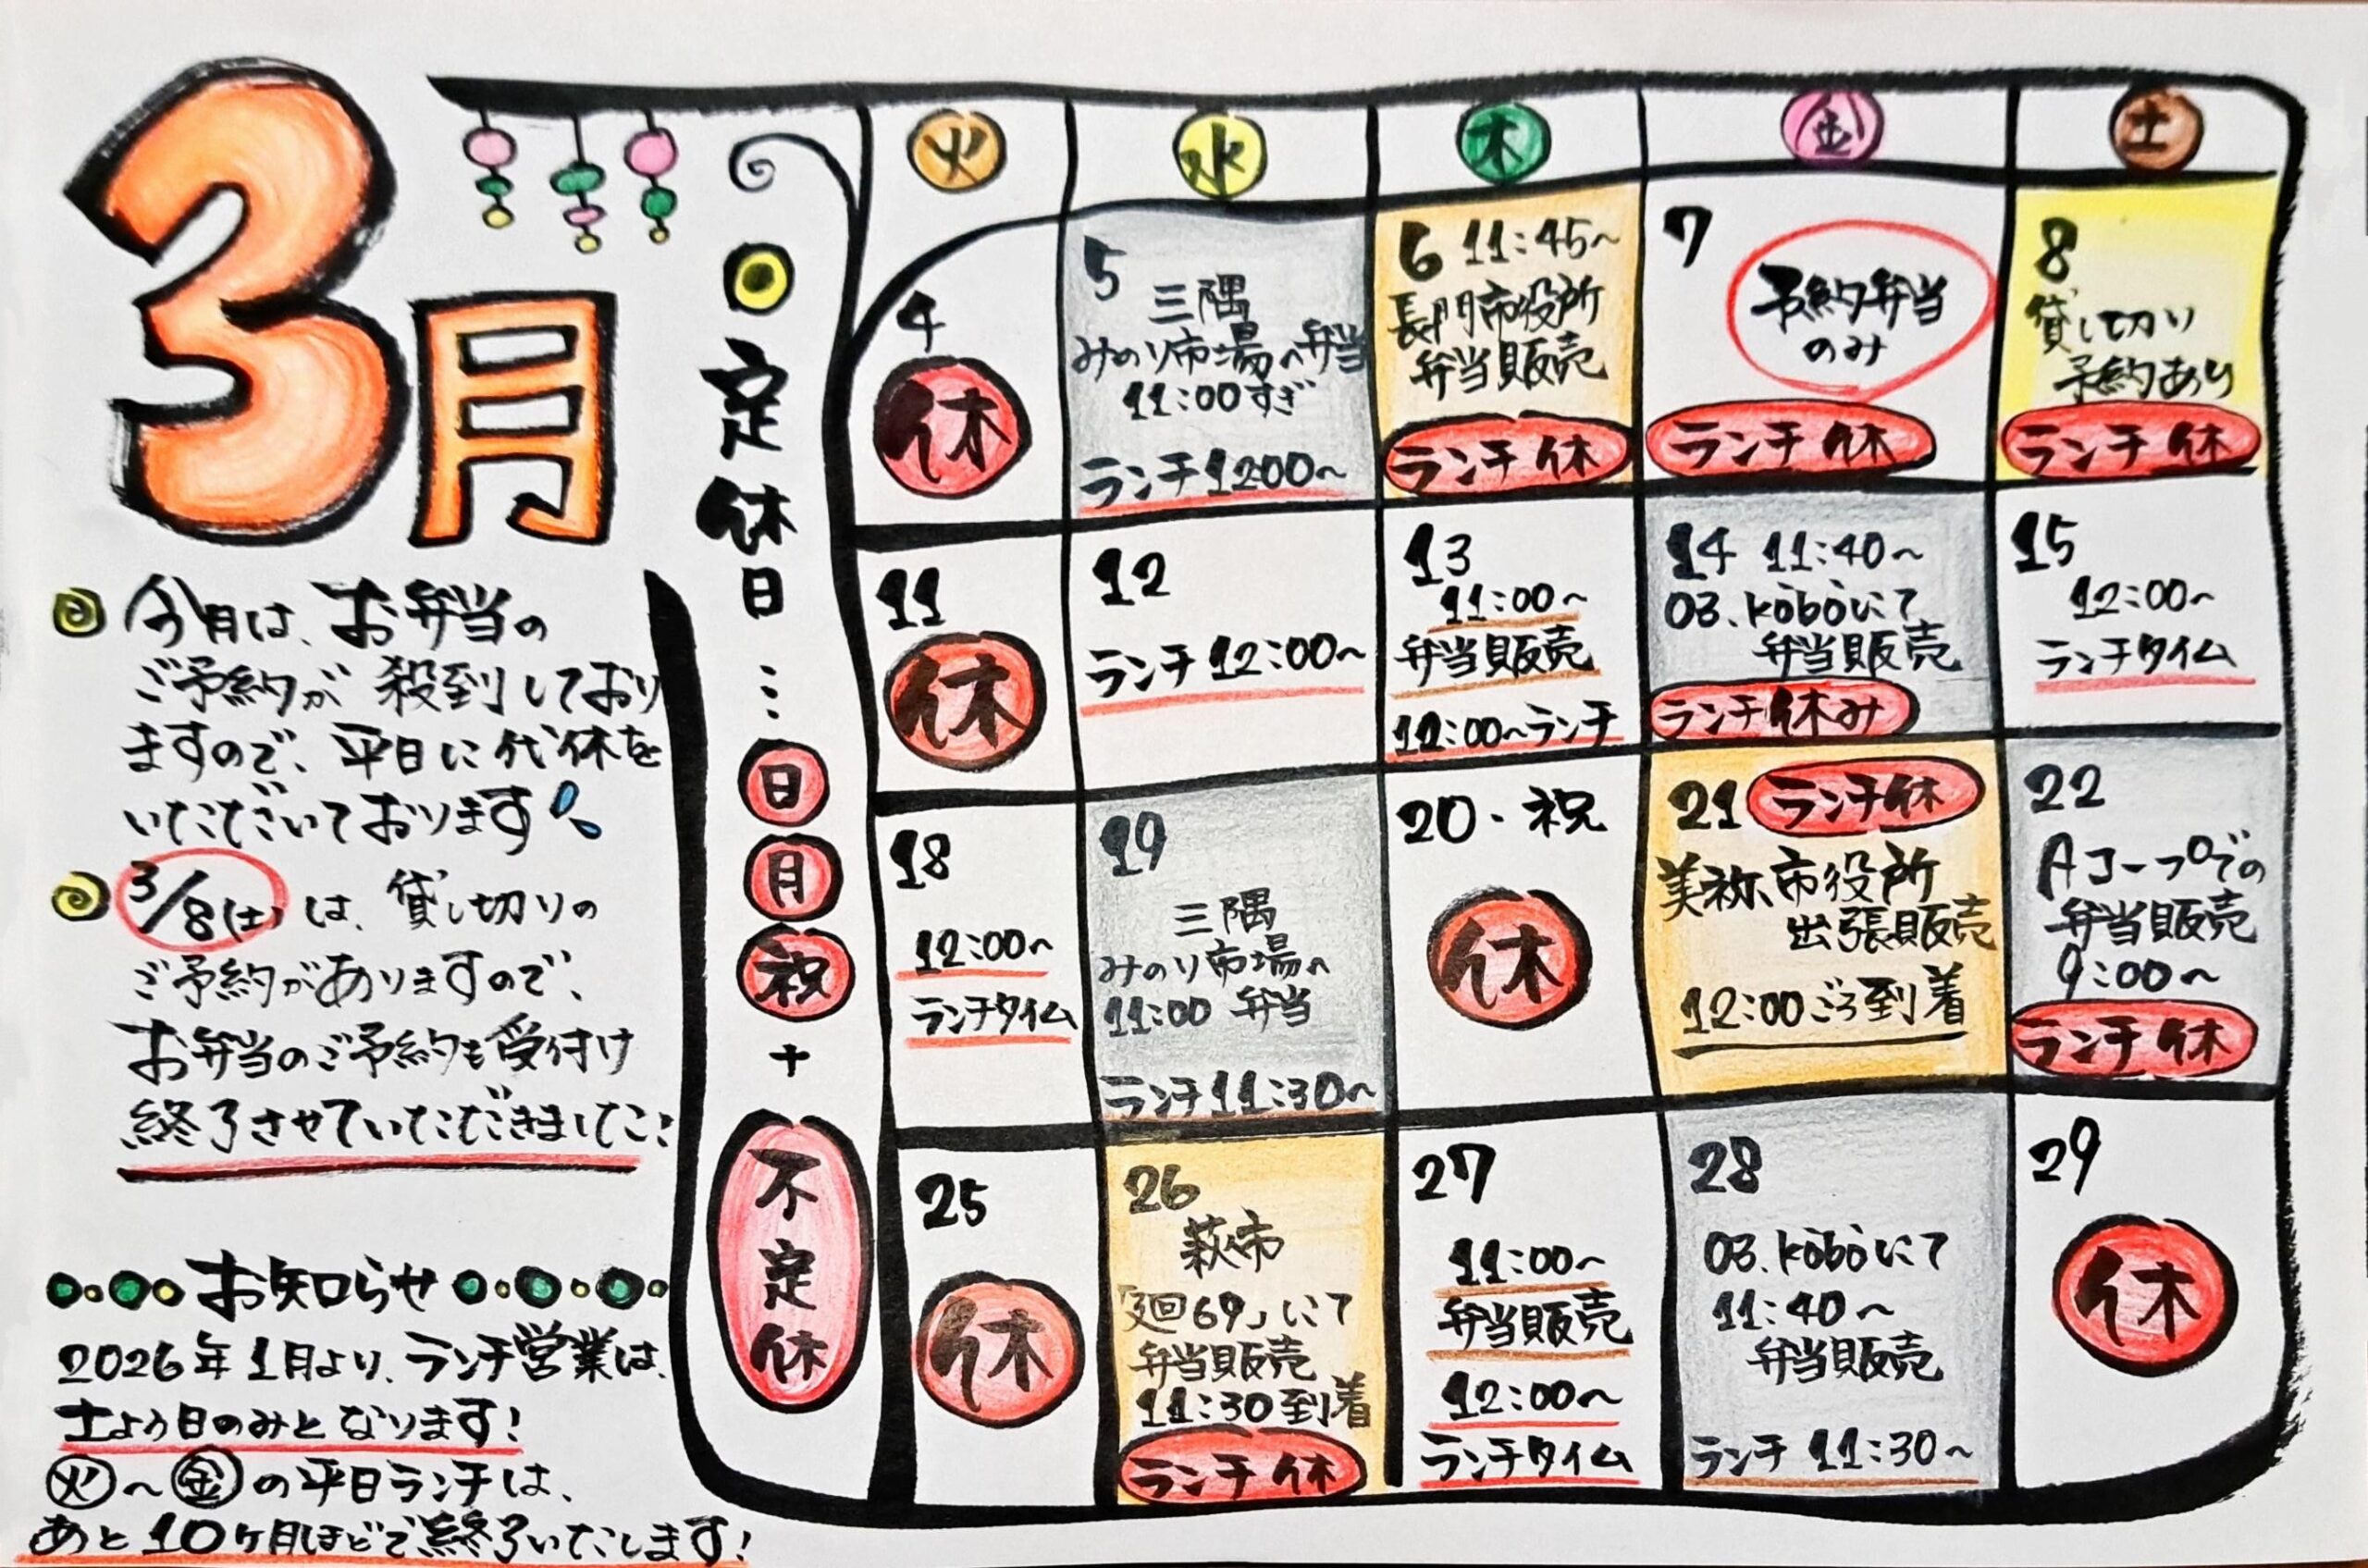 3月
今月は、お弁当の
ご予約が殺到しており
ますので、平日に代休を
いただいております
3/8(土)は、貸し切りの
ご予約がありますので、
お弁当のご予約も受付け
終了させていただきました!
お知らせ
2026年1月より、ランチ営業は、
土よう日のみとなります!
火~金の平日ランチは、
あと10ヶ月ほどで終了いたします!
定休日…日月祝+不定休
火 水 木 金 土
4
休
5
三隅
みのり市場へ弁当
11:00すぎ
ランチ12:00~
6 11:45~
長門市役所
弁当販売
ランチ休
7
予約弁当
のみ
ランチ休
8
貸し切り
予約あり
ランチ休
11
休
12
ランチ12:00~
13
11:00~
弁当販売
12:00~ランチ
14 11:40~
03.kōbōにて
弁当販売
ランチ休み
15
12:00~
ランチタイム
18
12:00~
ランチタイム
19
三隅
みのり市場へ
11:00 弁当
ランチ11:30~
20・祝
休
21 ランチ休
美祢市役所
出張販売
12:00ごろ到着
22
Aコープでの
弁当販売
9:00~
ランチ休
25
休
26
萩市
「廻69」にて
弁当販売
11:30到着
ランチ休
27
11:00~
弁当販売
12:00~
ランチタイム
28
03.kōbōにて
11:40~
弁当販売
ランチ 11:30~
29
休